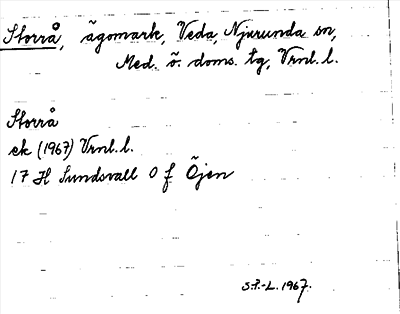 Storrå, ägomark, Veda, Njurunda sn,
Med. ö. doms. tg, Vrnl. l.
Storrå
ek (1967) Vrnl. l.
17 H Sundsvall O f Öjen
S.P.-L. 1967.